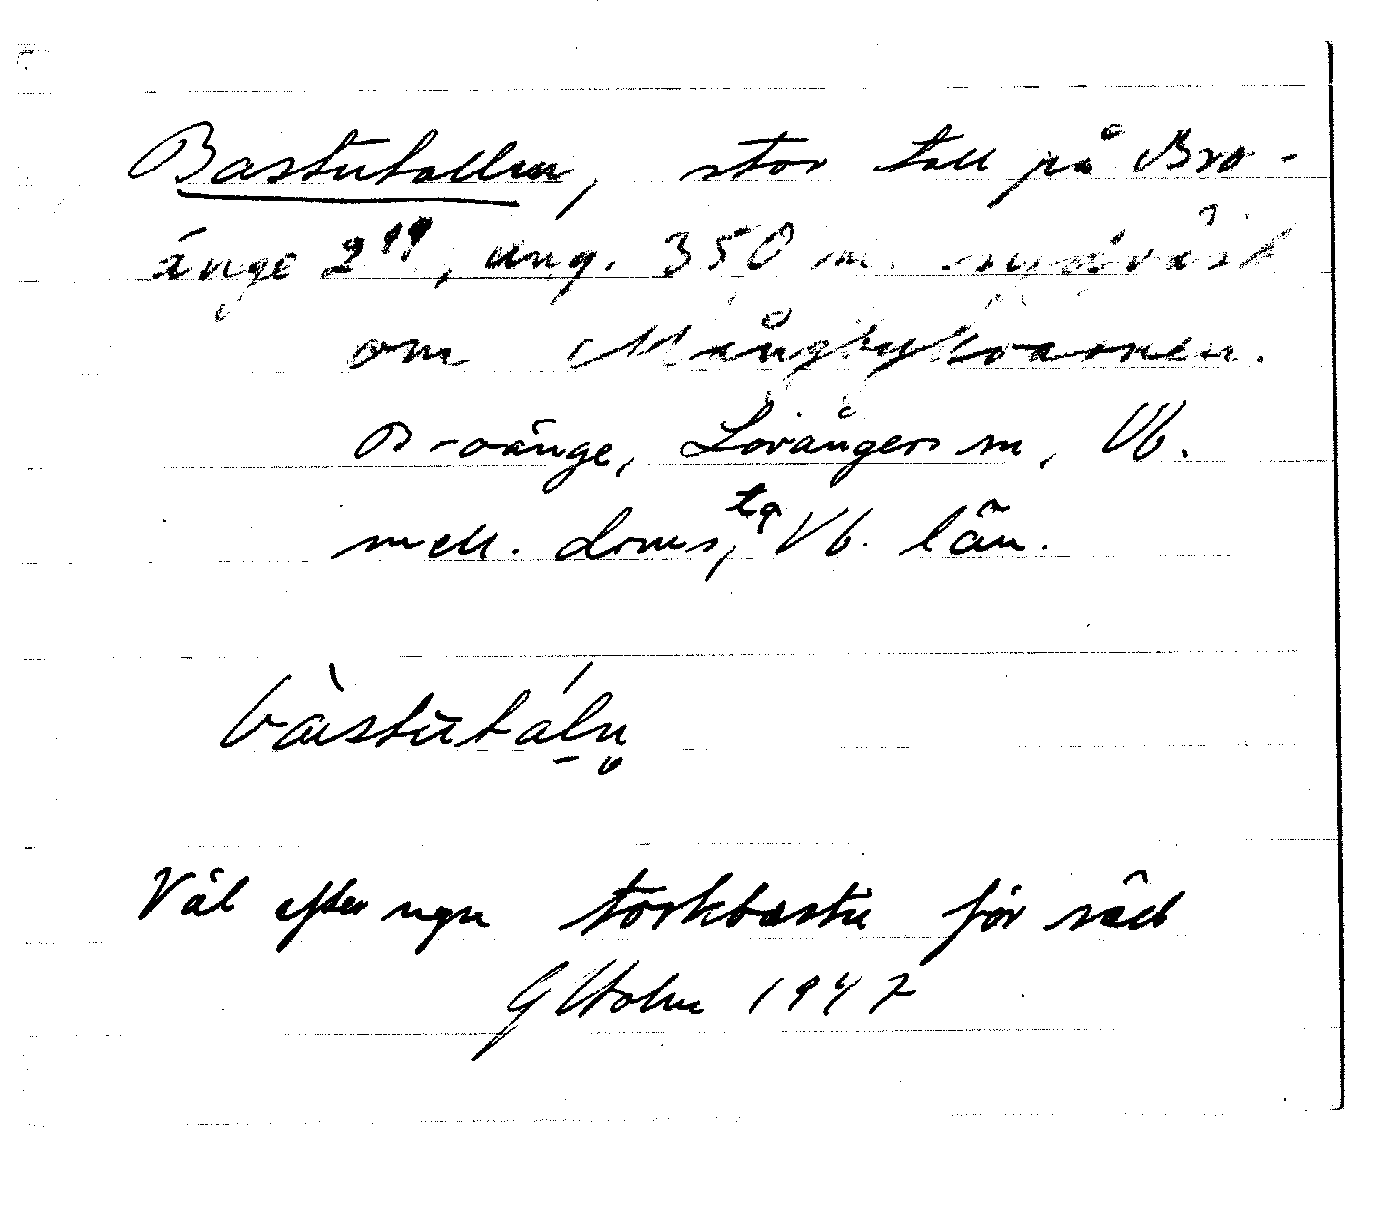 Bastutallen, stor tall på Bro-
änge 2¹⁹, ung. 350 m. sydväst
om Mångbykvarnen.
Broänge, Lövångers sn, Vb.
mell. doms, tg Vb. län.
bàstutáln̥
Väl efter ngn torkbastu för säd
G Holm 1947